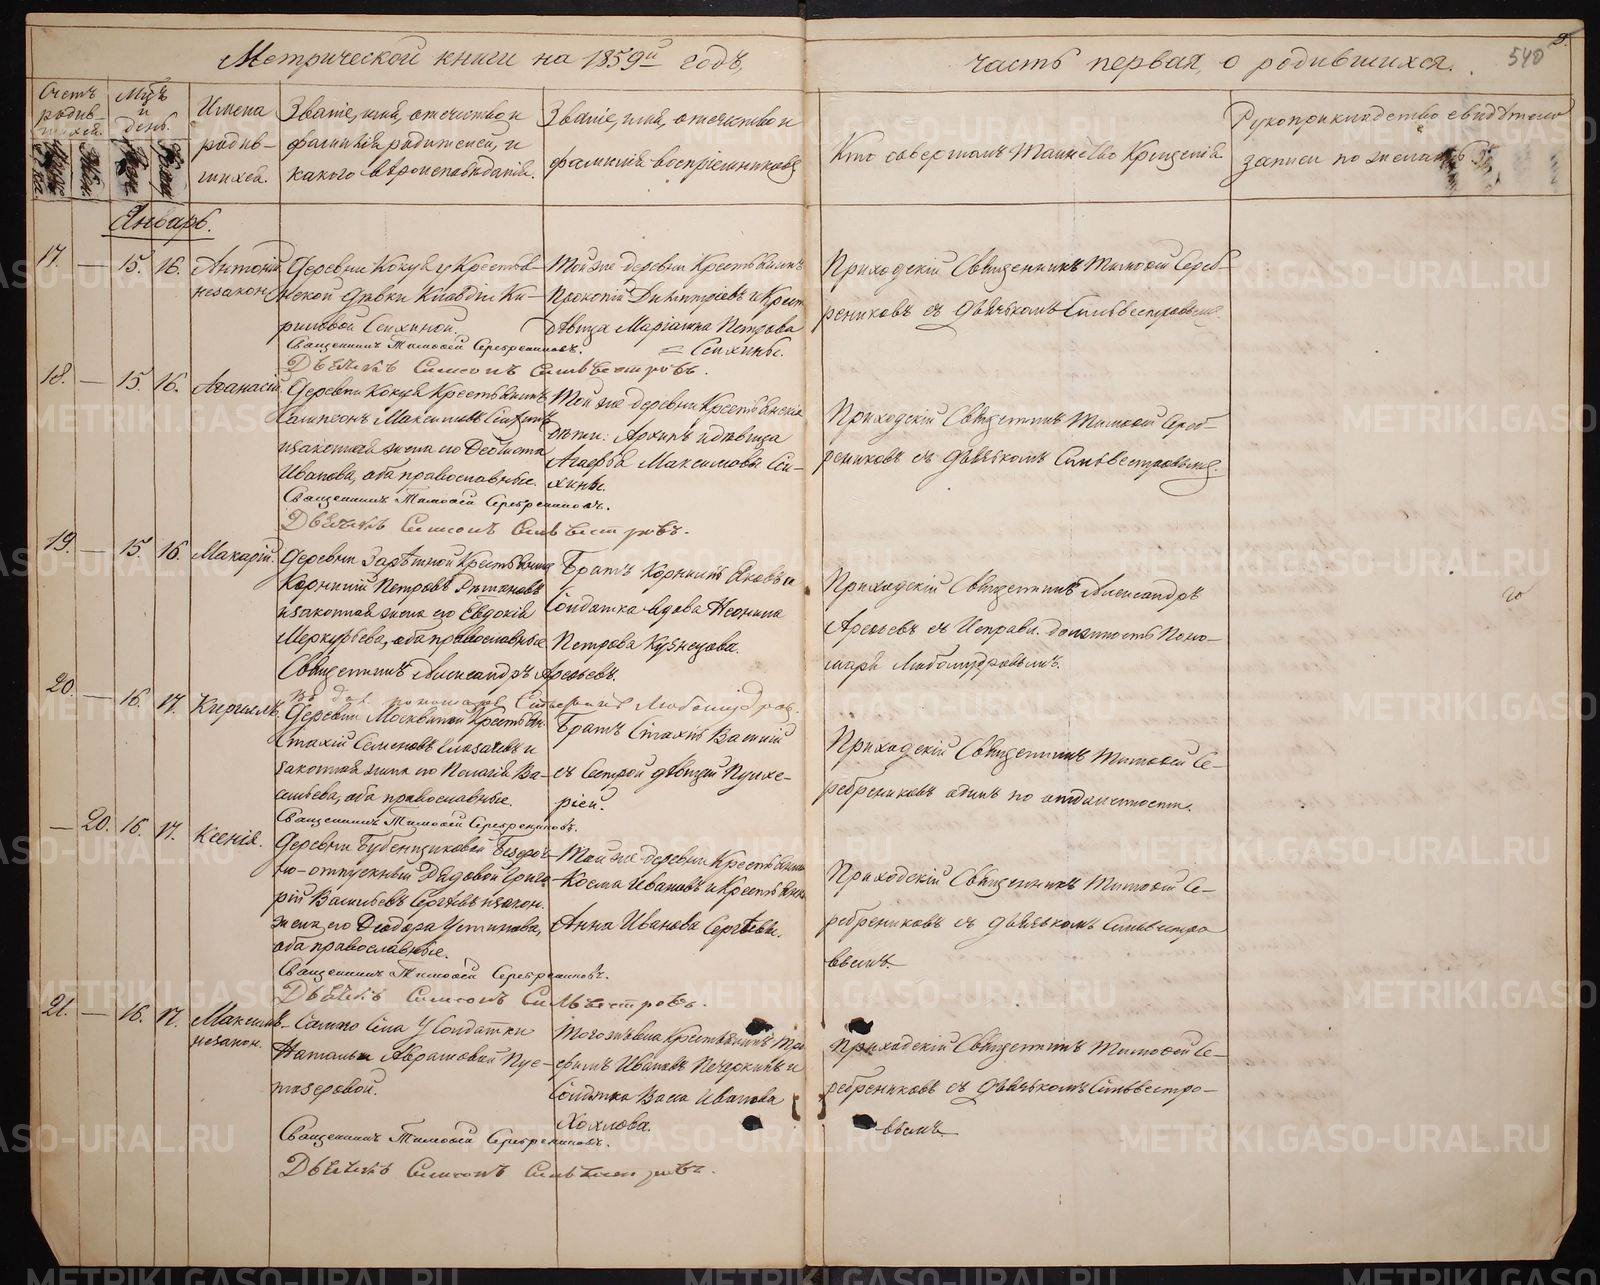 Метрической книги на 1859й годъ,
часть первая, о родившихся.
540
Счетъ
родив-
шихся.
Мцъ
и
день.
Имена
родив-
шихся.
Званіе, имя, отечество и
фамилія родителей, и
какого вѣроисповѣданія.
Званіе, имя, отечество и
фамилія воспріемниковъ
Кто совершалъ таинство Крещенія
Рукоприкладство свидѣтелей
записи по желанію
Январь.
17. — 15. 16.
Антоній
незакон.
Деревни Кокуя у Крестьян-
нской дѣвки Клавдіи Ки-
риловой Сеихиной.
Священникъ Тимоѳей Серебрениковъ.
Дьячекъ Симеонъ Сильвестровъ.
Той же деревни Крестьянинъ
Прокопій Димитріевъ и Крест.
дѣвица Маріанна Петрова
Сеихины.
Приходскій Священникъ Тимоѳей Сереб-
рениковъ съ дьячкомъ Сильвестровымъ.
18. — 15 16.
Аѳанасій
Деревни Кокуя Крестьянинъ
Сампсонъ Максимовъ
и законная жена его
Иванова, оба православные.
Священникъ Тимоѳей Серебрениковъ.
Дьячекъ Симеонъ Сильвестровъ.
Той же деревни Крестьянскія
дѣти: Архипъ и дѣвица
Агаѳья Максимовы Сеи-
хины.
Приходскій Священникъ Тимоѳей Сереб-
рениковъ съ дьячкомъ Сильвестровымъ.
19. — 15. 16.
Макарій.
Деревни Зарѣчной Крестьянинъ
Корнилій Петровъ
и законная жена его Евдокія
Меркурьева, оба православные
Священникъ Александръ Арефьевъ.
пономаря Любомудровъ.
Братъ Корнилія Яковъ и
Солдатка вдова Неонила
Петрова Кузнецова.
Приходскій Священникъ Александръ
Арефьевъ съ Исправл. должность Поно-
маря Любомудровымъ.
20. — 16. 17.
Кириллъ
Деревни Москвиной Крестьян.
Стахій Семеновъ Глазачевъ и
законная жена его Пелагія Ва-
сильева, оба православные.
Священникъ Тимоѳей Серебрениковъ.
Братъ Стахія Василій
съ Сестрой дѣвицей Пульхе-
ріей.
Приходскій Священникъ Тимоѳей Се-
ребрениковъ одинъ по отдаленности.
— 20. 16. 17.
Ксенія.
Деревни Бубенщиковой Безсроч-
но-отпускный Рядовой Григо-
рій Васильевъ Сергѣевъ и закон.
жена его Ѳеодора Устинова,
оба православные.
Священникъ Тимоѳей Серебрениковъ.
Дьячекъ Симеонъ Сильвестровъ.
Той же деревни Крестьянинъ
Косма Ивановъ и Крестьянка
Анна Иванова Сергѣевы.
Приходскій Священникъ Тимоѳей Се-
ребрениковъ съ дьячкомъ Сильвестро
вымъ.
21. — 16. 17.
Максимъ
незакон.
Самаго Села у Солдатки
Натальи Абрамовой Пус-
тозеровой.
Священникъ Тимоѳей Серебрениковъ.
Дьячекъ Симеонъ Сильвестровъ.
Тогожъ села Крестьянинъ Тро-
фимъ Ивановъ Печеркинъ и
Солдатка Васса Иванова
Хохлова.
Приходскій Священникъ Тимоѳей Се-
ребрениковъ съ дьячкомъ Сильвестро-
вымъ.
METRIKI.GASO-URAL.RU